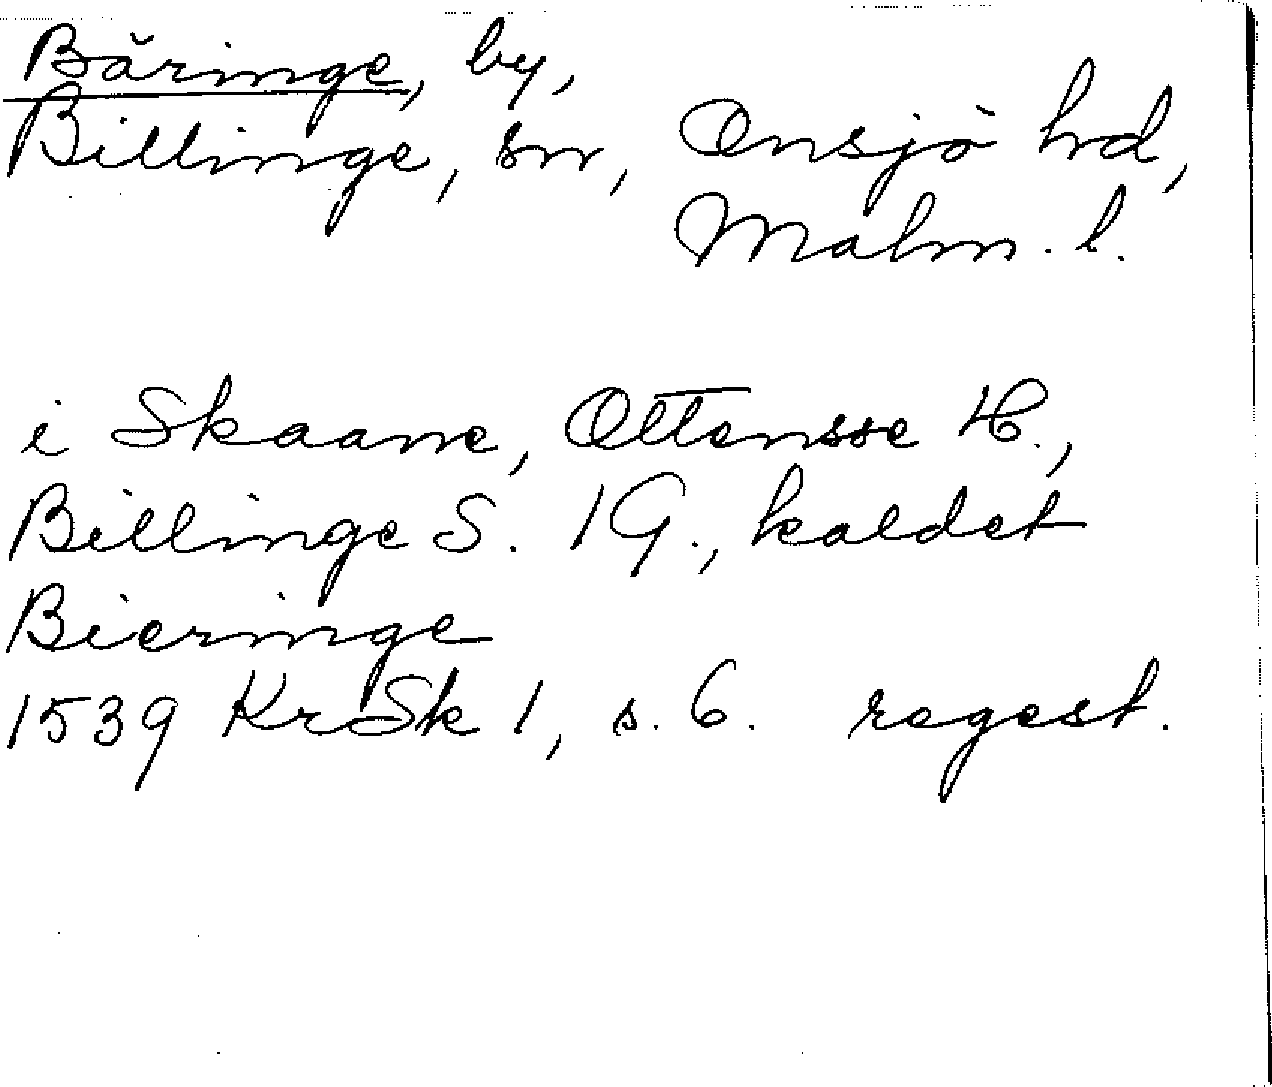 Bäringe, by,
Billinge, sn, Onsjö hd,
Malm. l.
i Skaane, Ottensøe H.,
Billinge S. 1 G., kaldet
Bieringe
1539 KrSk 1, s. 6. regest.